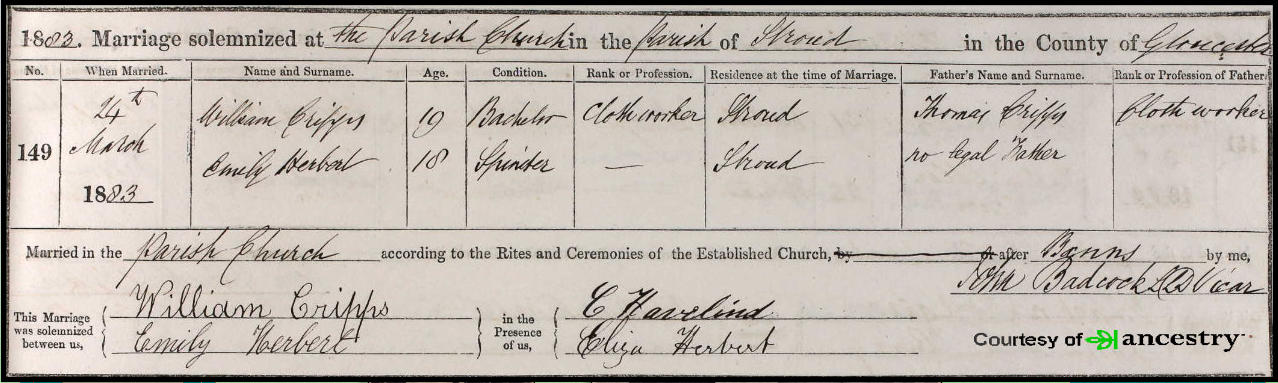 1883. Marriage solemnized at the Parish Church in the Parish of Stroud in the County of Gloucester
No. When Married. Name and Surname. Age. Condition. Rank or Profession. Residence at the time of Marriage. Father's Name and Surname. Rank or Profession of Father.
24th William Cripps 19 Bachelor Cloth worker Stroud Thomas Cripps Cloth worker
149 March Emily Herbert 18 Spinster — Stroud no legal Father
1883
Married in the Parish Church according to the Rites and Ceremonies of the Established Church, by or after Banns by me,
John Badcock LLD Vicar
This Marriage was solemnized between us, William Cripps in the Presence of us, C Havelind
Emily Herbert Eliza Herbert
Courtesy of ancestry